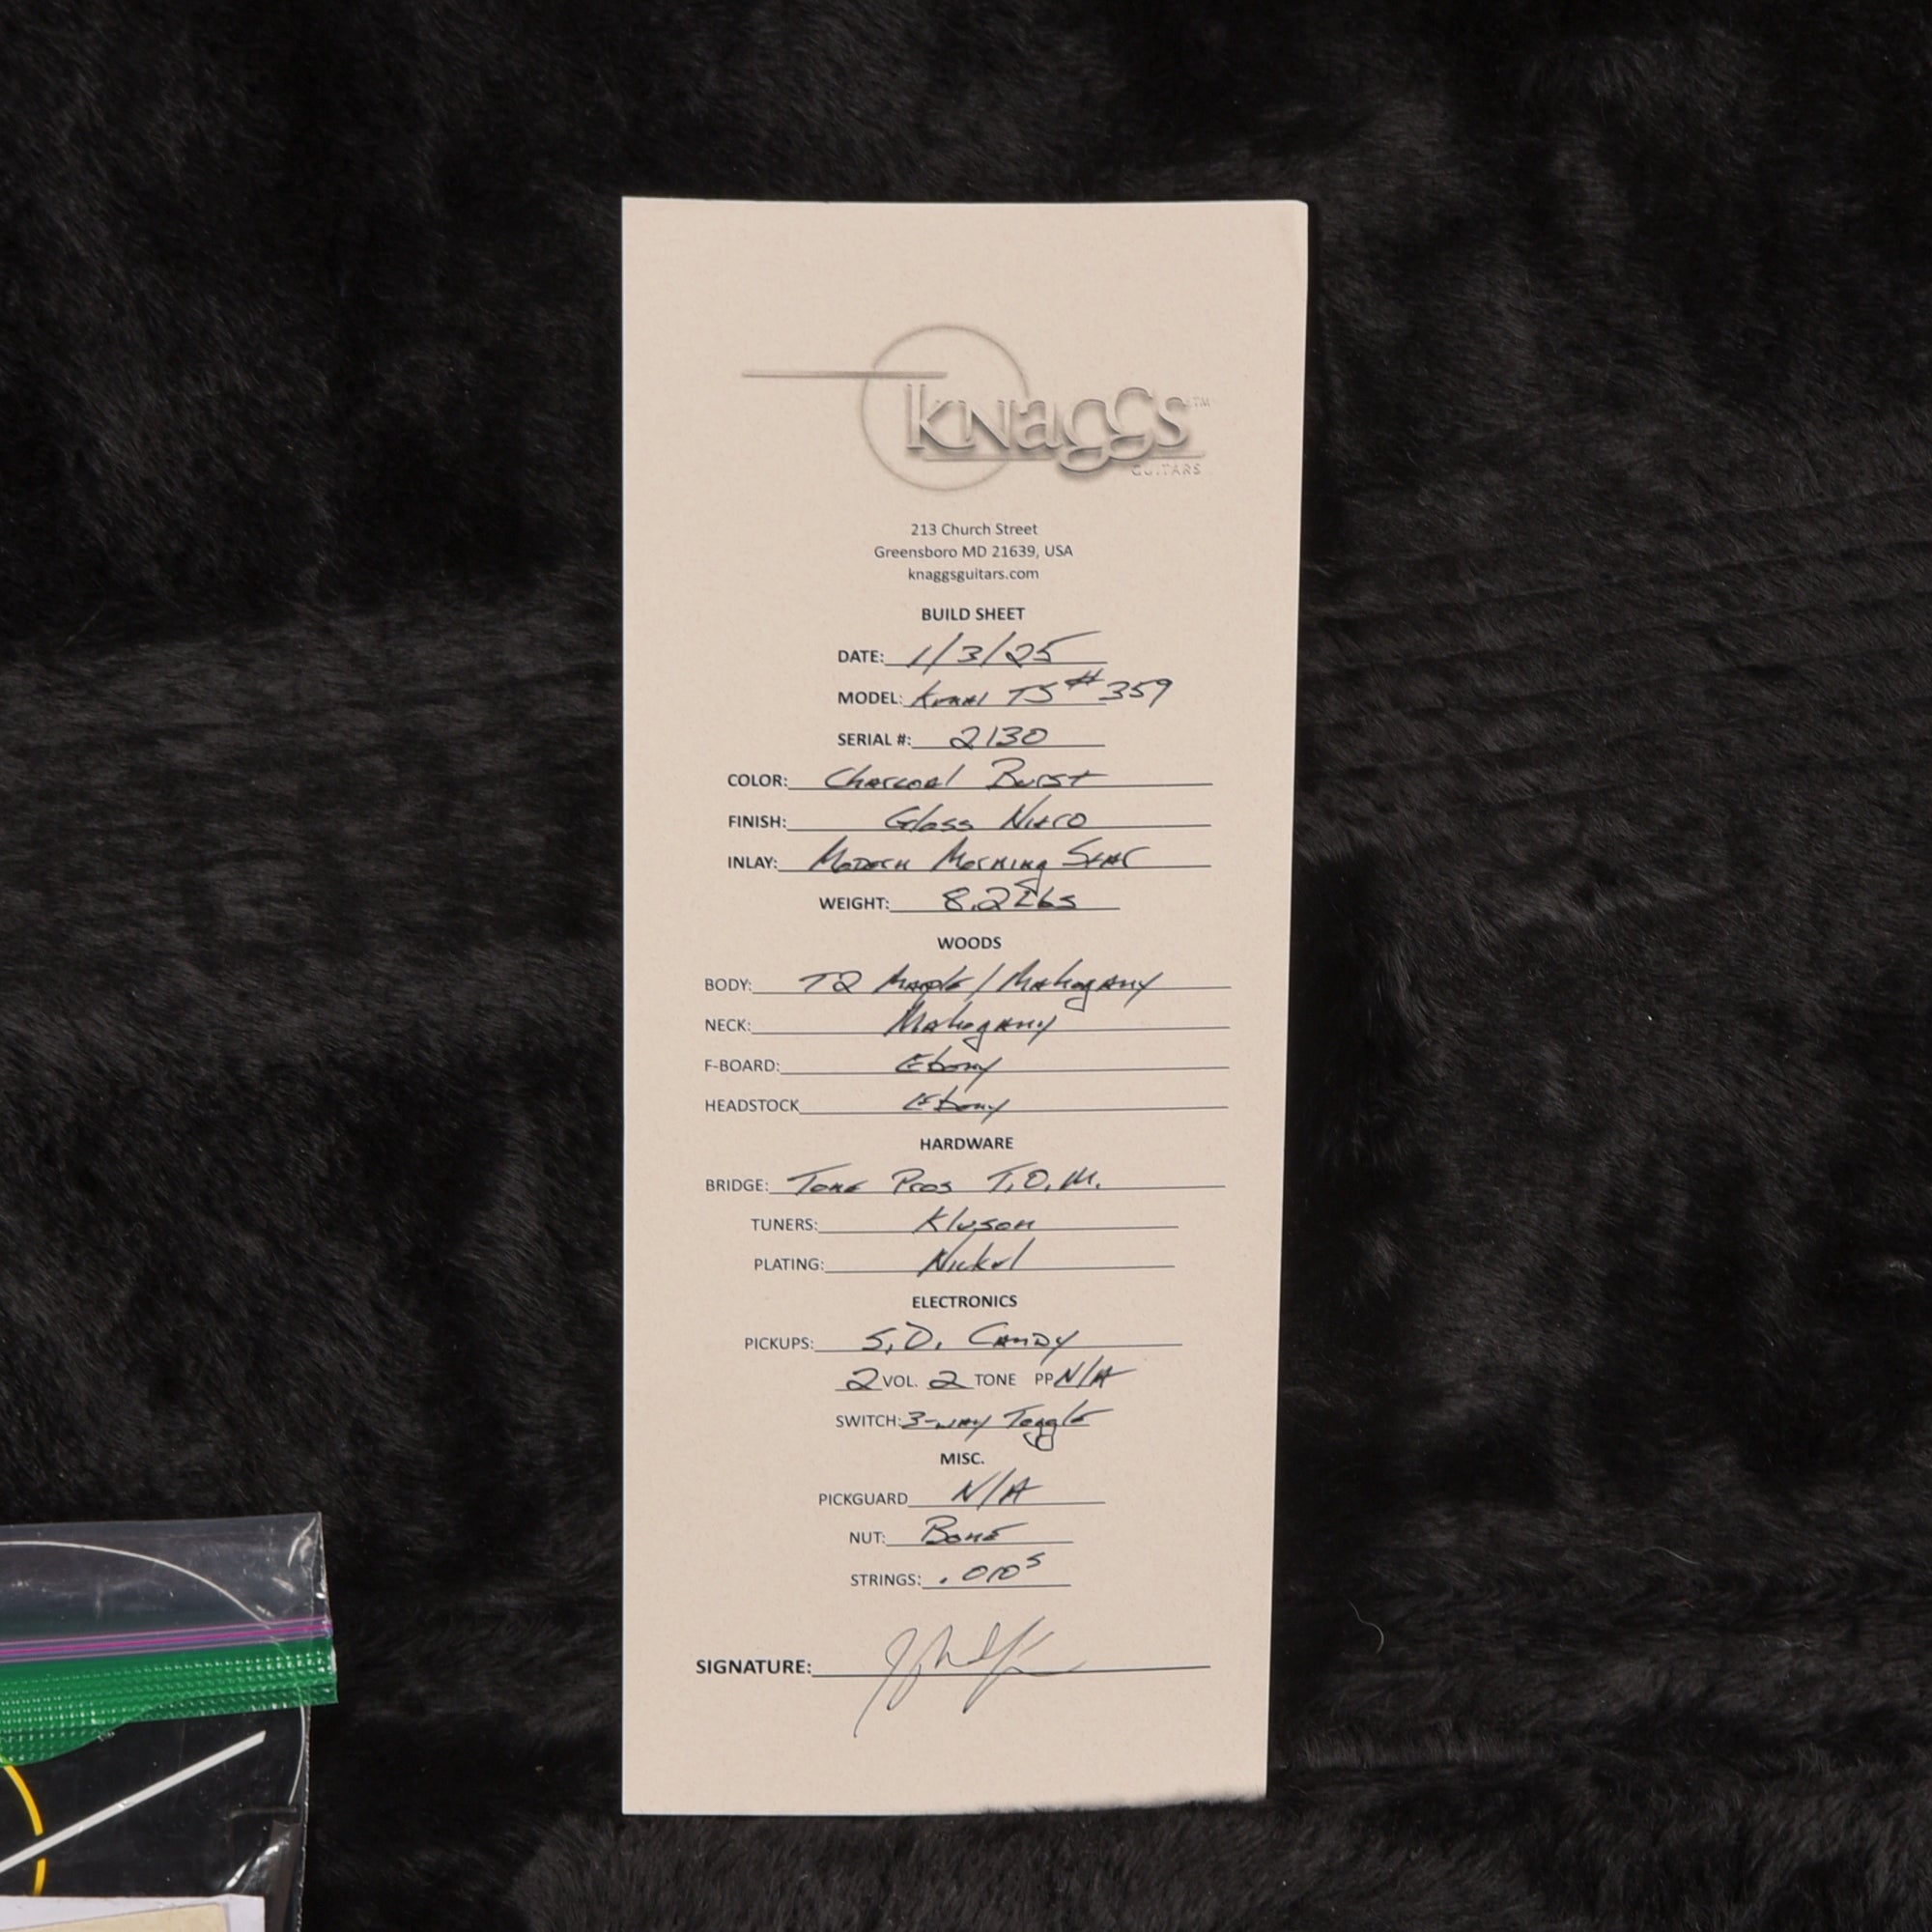 Knaggs™
GUITARS
213 Church Street
Greensboro MD 21639, USA
knaggsguitars.com
BUILD SHEET
DATE: 1/3/25
MODEL: Kenai T5 #359
SERIAL #: 2130
COLOR: Charcoal Burst
FINISH: Gloss Nitro
INLAY: Modern Morning Star
WEIGHT: 8.2Lbs
WOODS
BODY: T2 Maple / Mahogany
NECK: Mahogany
F-BOARD: Ebony
HEADSTOCK Ebony
HARDWARE
BRIDGE: Tone Pros T.O.M.
TUNERS: Kluson
PLATING: Nickel
ELECTRONICS
PICKUPS: S.D. Candy
2 VOL. 2 TONE PP N/A
SWITCH: 3-way Toggle
MISC.
PICKGUARD N/A
NUT: Bone
STRINGS: .010s
SIGNATURE: